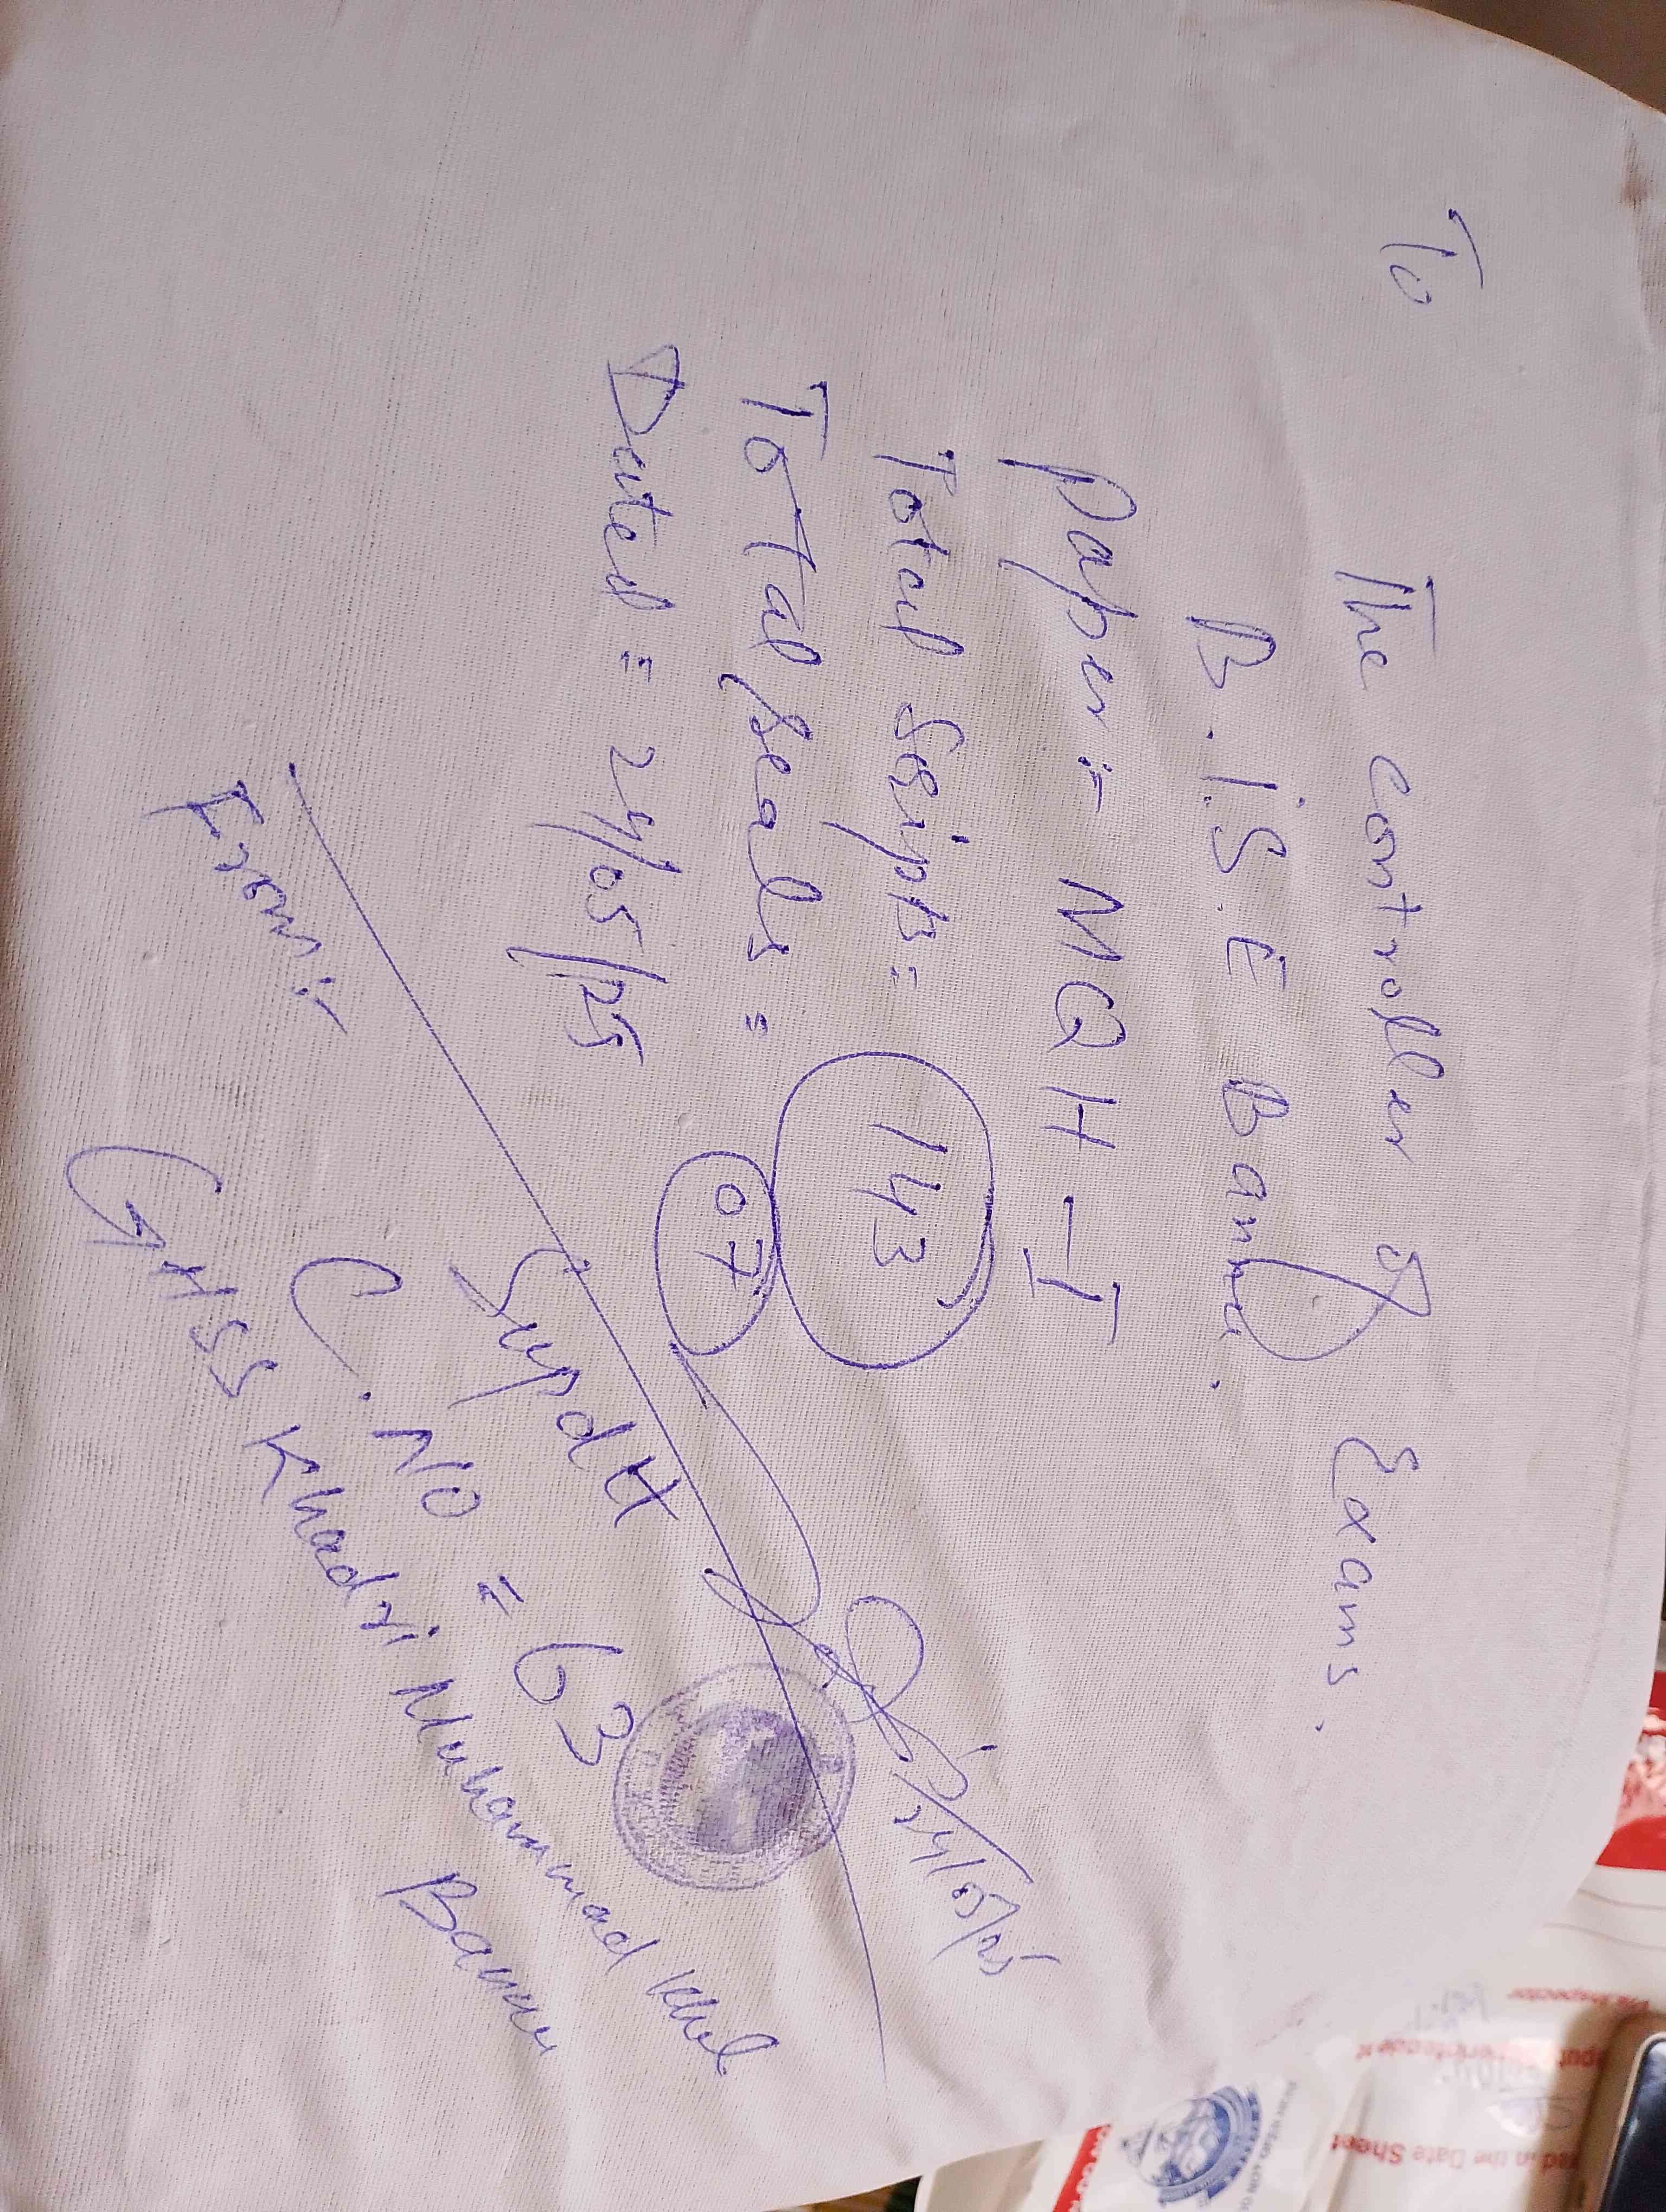 To
The controller of Exams.
B.I.S.E Bannu.
Paper:- MQH-I
Total Scripts = 143
Total Seals = 07
Dated = 24/05/25
24/05/25
From:-
Supdtt
C.No = 63
GHSS Khadri Muhammad Khel
Bannu
ed in the Date Sheet